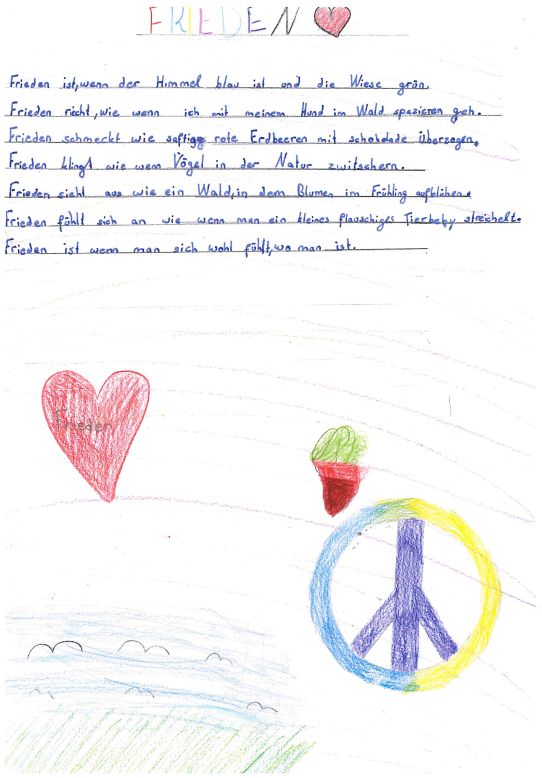 FRIEDEN
Frieden ist, wenn der Himmel blau ist und die Wiese grün.
Frieden riecht, wie wenn ich mit meinem Hund im Wald spazieren geh.
Frieden schmeckt wie saftige rote Erdbeeren mit schokolade überzogen.
Frieden klingt wie wenn Vögel in der Natur zwitschern.
Frieden sieht aus wie ein Wald, in dem Blumen im Frühling aufblühen.
Frieden fühlt sich an wie wenn man ein kleines flauschiges Tierbeby streichelt.
Frieden ist wenn man sich wohl fühlt, wo man ist.
Frieden